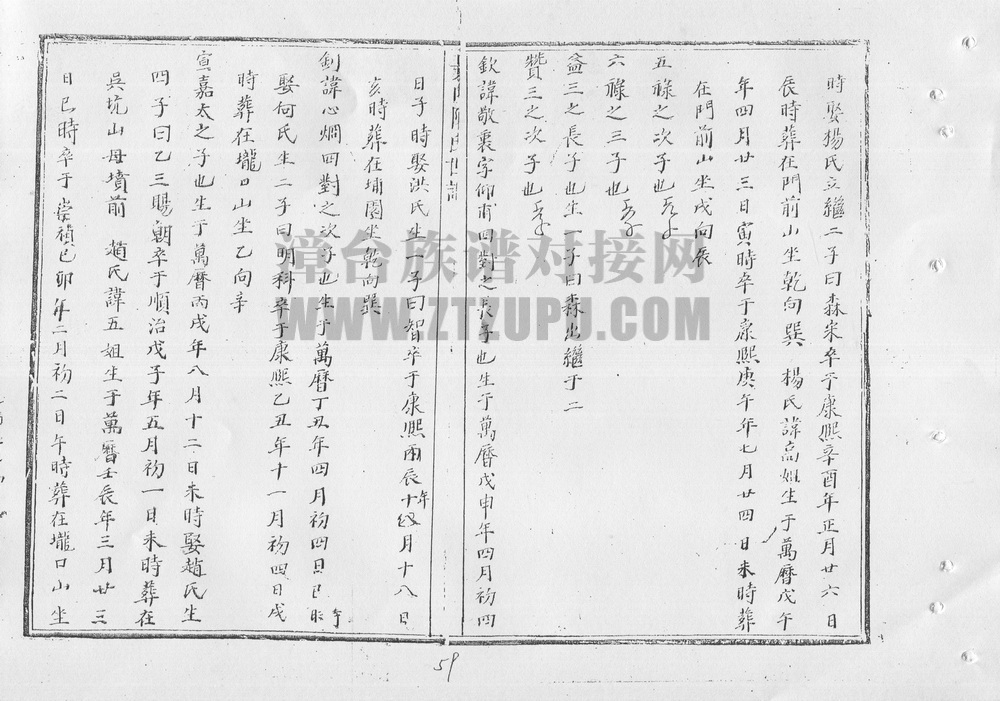 時娶楊氏立繼二子曰森宋卒于康熙辛酉年正月廿六日
辰時葬在門前山坐乾向巽 楊氏諱高姐生于萬曆戊午
年四月廿三日寅時卒于康熙庚午年七月廿四日未時葬
在門前山坐戌向辰
五祿之次子也
六祿之三子也
益三之長子也生一子曰森出繼于二
贊三之次子也
欽諱敬裏字仰甫四對之長子也生于萬曆戊申年四月初四
日子時娶洪氏生一子曰智卒于康熙丙辰年十月十八日
亥時葬在埔園坐乾向巽
釗諱心烱四對之次子也生于萬曆丁丑年四月初四日巳時
娶何氏生二子曰明科卒于康熙乙丑年十一月初四日戌
時葬在壠口山坐乙向辛
宣嘉太之子也生于萬曆丙戌年八月十二日未時娶趙氏生
四子曰乙三賜朝卒于順治戊子年五月初一日未時葬在
吳坑山母墳前 趙氏諱五姐生于萬曆壬辰年三月廿三
日巳時卒于崇禎己卯年二月初二日午時葬在壠口山坐
59
漳台族谱对接网
WWW.ZTZUPU.COM